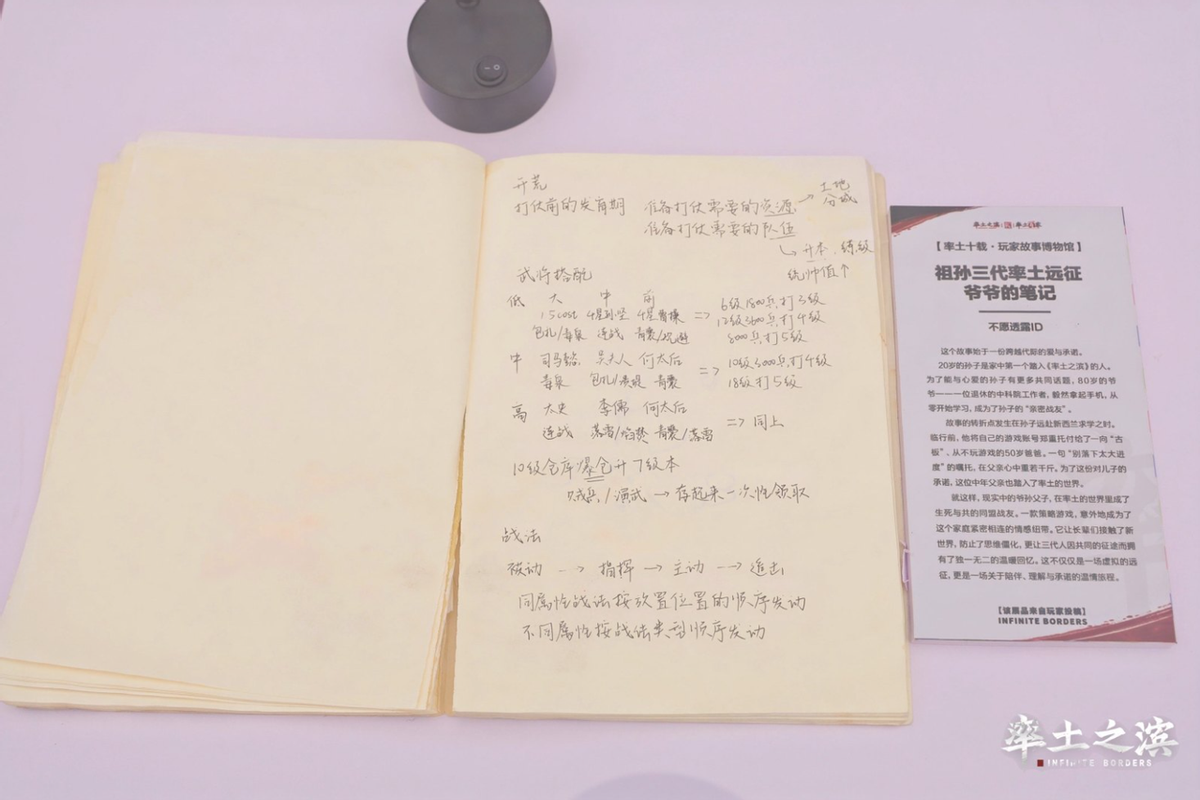 开荒
打仗前的发育期 准备打仗需要的资源 → 土地 分城
准备打仗需要的队伍
↳ 升本、练级
统帅值↑
武将搭配
低 大 中 前
1.5cost 4星孙坚 4星曹操 => 6级1800兵打3级
12级3600兵打4级
包扎/毒泉 连战 青囊/ 8000兵打5级
中 司马懿 吴夫人 何太后 => 10级3000兵打4级
毒泉 包扎/ 青囊 18级打5级
高 太史 李儒 何太后 => 同上
连战 落雷/焰焚 青囊/落雷
10级仓库爆仓升7级本
贼兵/演武 → 存起来一次性领取
战法
被动 --> 指挥 → 主动 --> 追击
同属性战法按放置位置的顺序发动
不同属性按战法类型顺序发动
率土之滨
【率土十载·玩家故事博物馆】
祖孙三代率土远征
爷爷的笔记
不愿透露ID
这个故事始于一份跨越代际的爱与承诺。
20岁的孙子是家中第一个踏入《率土之滨》的人。
为了能与心爱的孙子有更多共同话题，80岁的爷
爷——一位退休的中科院工作者，毅然拿起手机，从
零开始学习，成为了孙子的“亲密战友”。
故事的转折点发生在孙子远赴新西兰求学之时。
临行前，他将自己的游戏账号郑重托付给了一向“古
板”、从不玩游戏的50岁爸爸。一句“别落下太大进
度”的嘱托，在父亲心中重若千斤。为了这份对儿子的
承诺，这位中年父亲也踏入了率土的世界。
就这样，现实中的爷孙父子，在率土的世界里成了
生死与共的同盟战友。一款策略游戏，意外地成为了
这个家庭紧密相连的情感纽带。它让长辈们接触了新
世界，防止了思维僵化，更让三代人因共同的征途而拥
有了独一无二的温暖回忆。这不仅仅是一场虚拟的远
征，更是一场关于陪伴、理解与承诺的温情旅程。
【该展品来自玩家投稿】
INFINITE BORDERS
率土之滨
INFINITE BORDERS